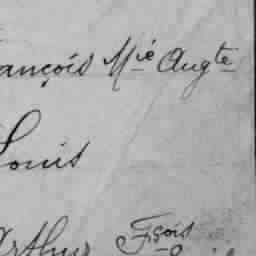 ançois Mie Augte
Louis
Arthur Fçois